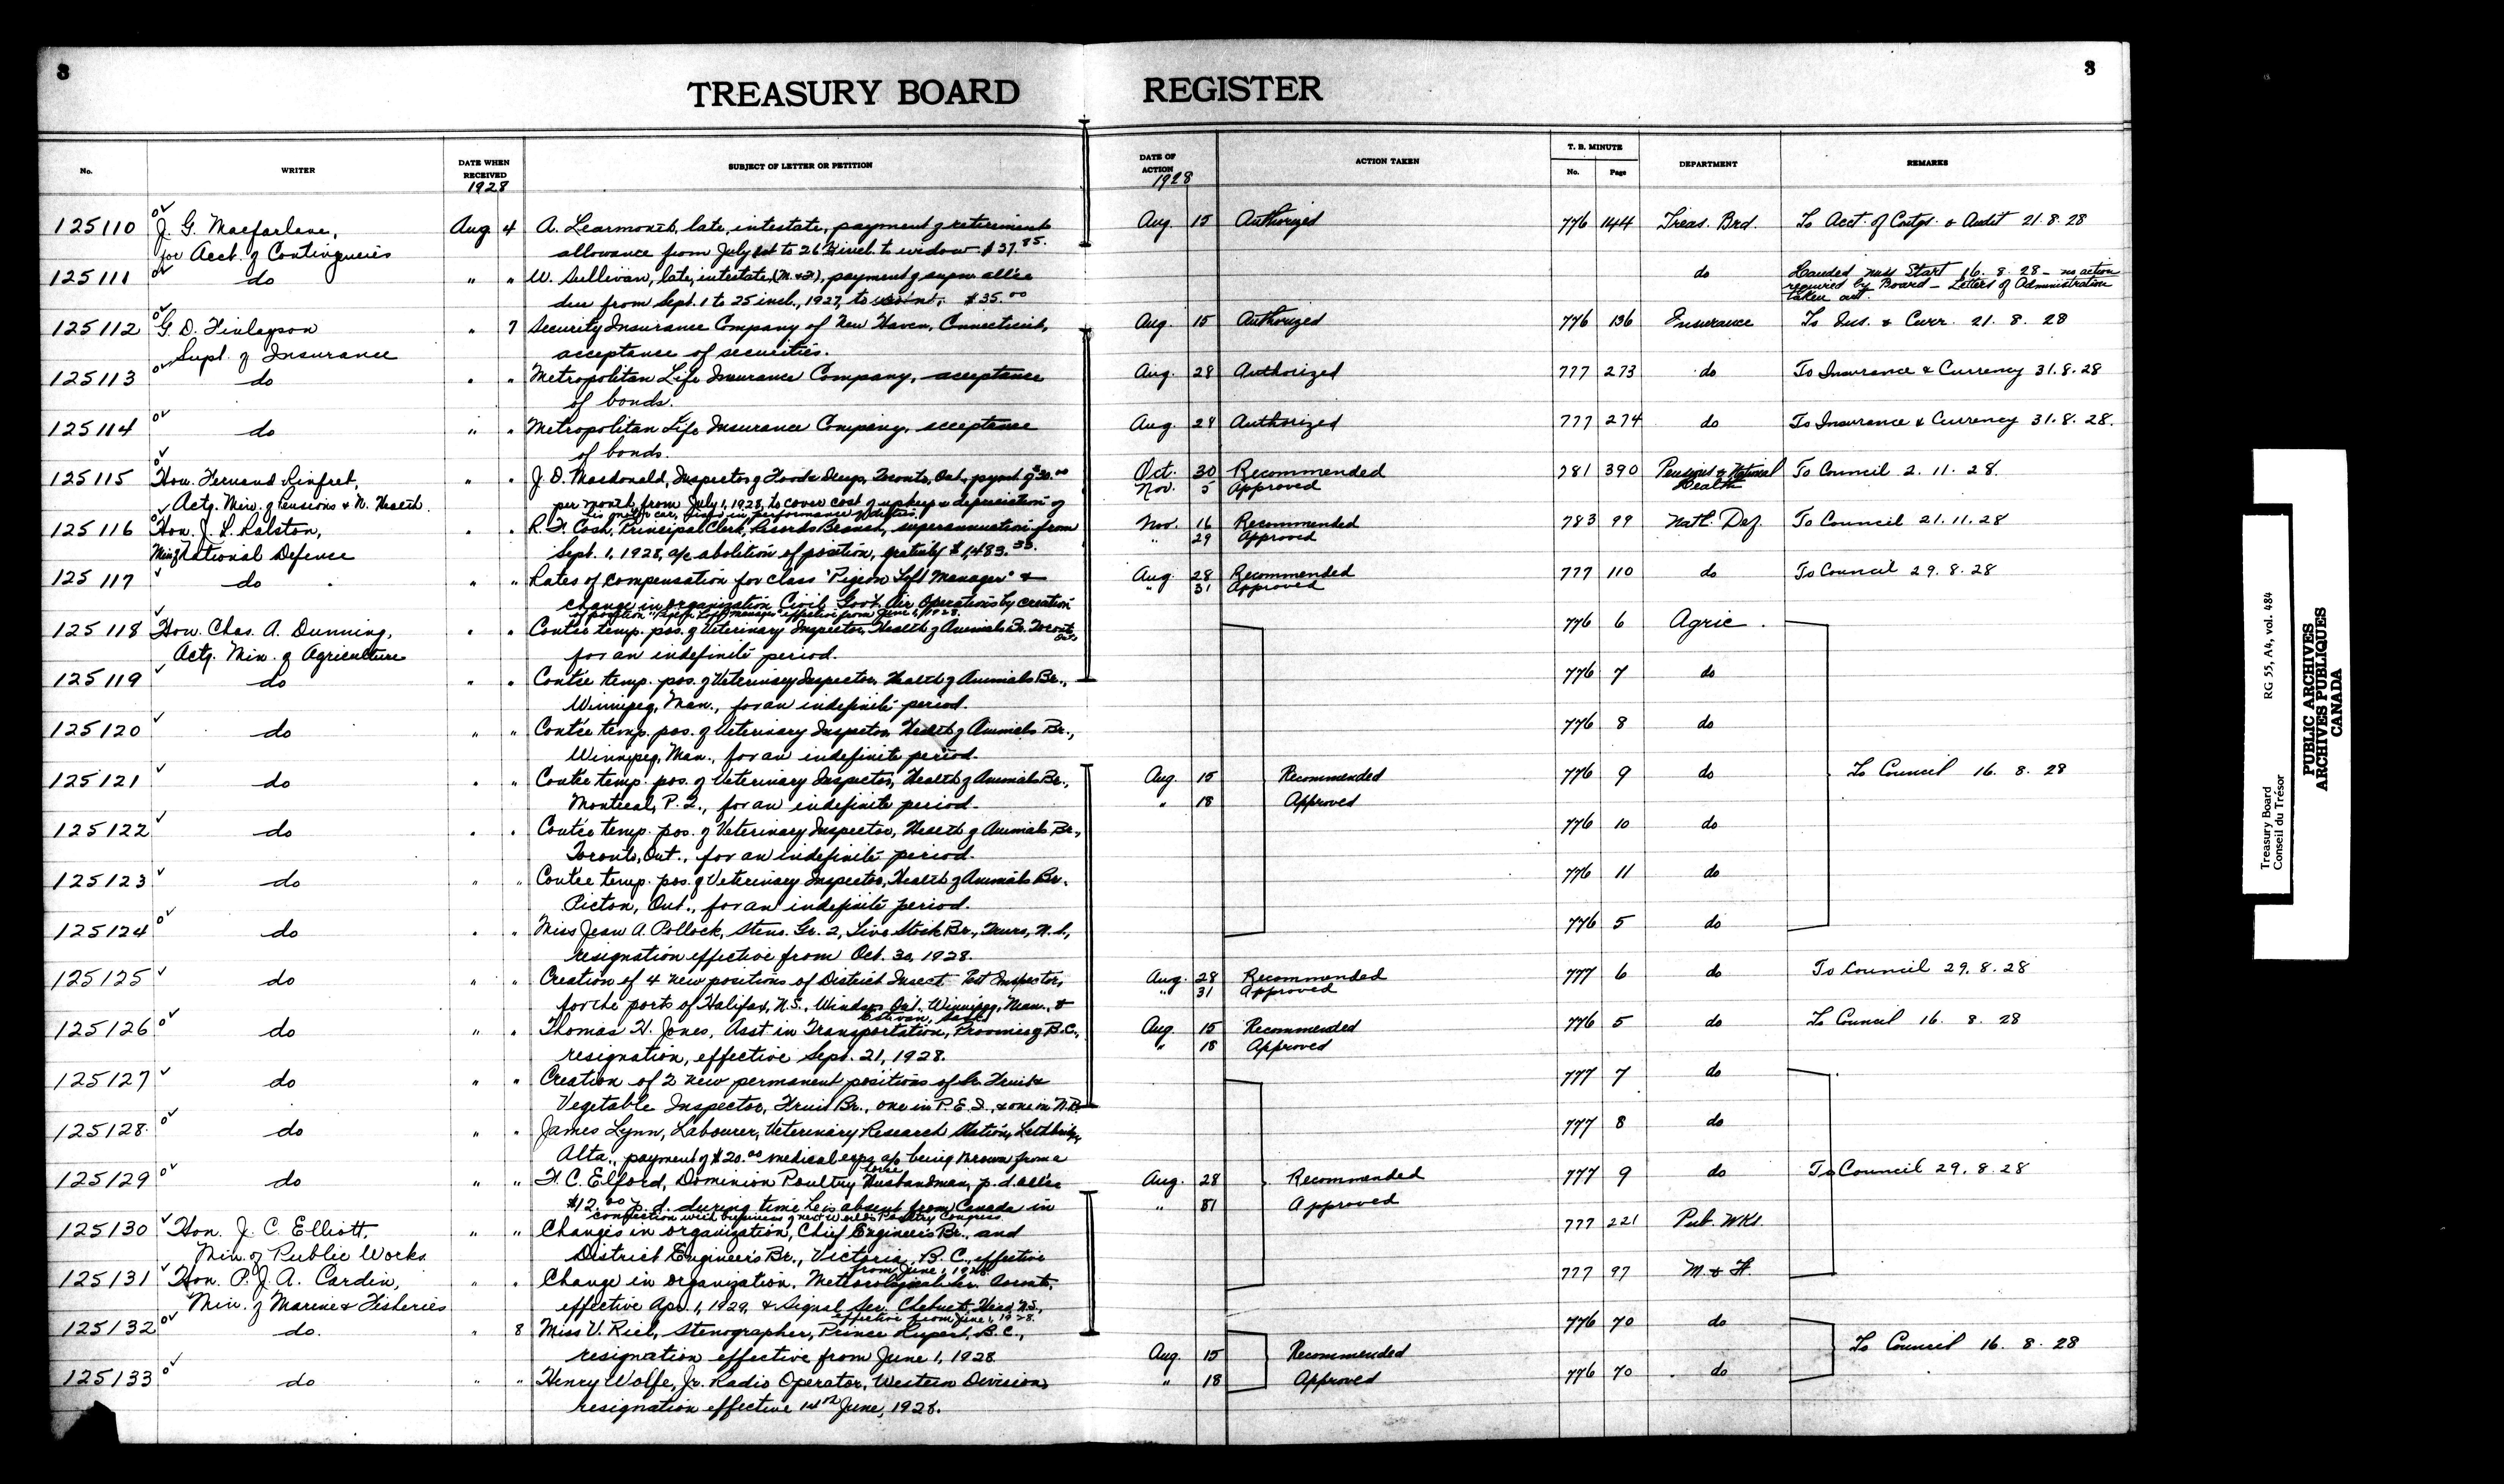 3
3
TREASURY BOARD REGISTER
No. WRITER DATE WHEN RECEIVED 1928 SUBJECT OF LETTER OR PETITION DATE OF ACTION 1928 ACTION TAKEN T. B. MINUTE No. Page DEPARTMENT REMARKS
125110 J. G. Macfarlane, Aug 4 A. Learmonth, late, intestate, payment of retirement Aug. 15 Authorized 776 144 Treas. Brd. To Acct. of Contgs. & Audit 21.8.28
for Acct. of Contingencies allowance from July 1st to 26 incl. to widow $37.85.
125111 do " " W. Sullivan, late, intestate, (M. & F), payment of supn. allce do Handed Miss Start 16.8.28 - no action
due from Sept. 1 to 25 incl., 1927, to $35.00 required by Board - Letters of Administration
taken out.
125112 G. D. Finlayson " 7 Security Insurance Company of New Haven, Connecticut, Aug. 15 Authorized 776 136 Insurance To Ins. & Curr. 21. 8. 28
Supt. of Insurance acceptance of securities.
125113 do " " Metropolitan Life Insurance Company, acceptance Aug. 28 Authorized 777 273 do To Insurance & Currency 31.8.28
of bonds.
125114 do " " Metropolitan Life Insurance Company, acceptance Aug. 28 Authorized 777 274 do To Insurance & Currency 31.8.28.
of bonds.
125115 Hon. Fernand Rinfret, " " J. D. Macdonald, Inspector of Foods & Drugs, Toronto, Ont., paymt of $30.00 Oct. 30 Recommended 781 390 Pensions & National To Council 2. 11. 28.
Actg. Min. of Pensions & N. Health. per month from July 1, 1928, to cover cost of upkeep & depreciation of Nov. 5 Approved Health
his motor car, used in performance of duties.
125116 Hon. J. L. Ralston, " " R. F. Cash, Principal Clerk, Records Branch, superannuation from Nov. 16 Recommended 783 99 Natl. Def. To Council 21.11.28
Min of National Defence Sept. 1, 1928, a/c abolition of position, gratuity $1,483.33. " 29 Approved
125117 do " " Rates of compensation for class "Pigeon Loft Manager" & Aug. 28 Recommended 777 110 do To Council 29.8.28
change in organization Civil Govt. Air Operations by creation " 31 Approved
of position "Pigeon Loft Manager" effective from June 1, 1928.
125118 Hon. Chas. A. Dunning, " " Contce temp. pos. of Veterinary Inspector, Health of Animals Br. Toronto 776 6 Agric.
Ont.,
Actg. Min. of Agriculture for an indefinite period.
125119 do " " Contce temp. pos. of Veterinary Inspector, Health of Animals Br., 776 7 do
Winnipeg, Man., for an indefinite period.
125120 do " " Contce temp. pos. of Veterinary Inspector, Health of Animals Br., 776 8 do
Winnipeg, Man., for an indefinite period.
125121 do " " Contce temp. pos. of Veterinary Inspector, Health of Animals Br., Aug. 15 Recommended 776 9 do To Council 16. 8. 28
Montreal, P. Q., for an indefinite period. " 18 Approved
125122 do " " Contce temp. pos. of Veterinary Inspector, Health of Animals Br., 776 10 do
Toronto, Ont., for an indefinite period.
125123 do " " Contce temp. pos. of Veterinary Inspector, Health of Animals Br. 776 11 do
Picton, Ont., for an indefinite period.
125124 do " " Miss Jean A. Pollock, Steno. Gr. 2, Live Stock Br., Truro, N.S., 776 5 do
resignation effective from Oct. 30, 1928.
125125 do " " Creation of 4 new positions of District Insect Pest Inspector, Aug. 28 Recommended 777 6 do To Council 29.8.28
for the ports of Halifax, N.S., Windsor, Ont., Winnipeg, Man., & " 31 Approved
Estevan, Sask.
125126 do " " Thomas H. Jones, Asst. in Transportation, Province of B.C., Aug. 15 Recommended 776 5 do To Council 16. 8. 28
resignation, effective Sept. 21, 1928. " 18 Approved
125127 do " " Creation of 2 new permanent positions of Sr. Fruit & 777 7 do
Vegetable Inspector, Fruit Br., one in P.E.I., & one in N.B.
125128 do " " James Lynn, Labourer, Veterinary Research Station, Lethbridge, 777 8 do
Alta., payment of $20.00 medical exps. a/c being thrown from a
horse
125129 do " " F. C. Elford, Dominion Poultry Husbandman, p.d. allce Aug. 28 Recommended 777 9 do To Council 29.8.28
$12.00 p.d. during time he is absent from Canada in " 31 Approved
connection with business of next World's Poultry Congress
125130 Hon. J. C. Elliott, " " Changes in organization, Chief Engineer's Br., and 777 221 Pub. Wks.
Min. of Public Works. District Engineer's Br., Victoria, B.C., effective
from June 1, 1928.
125131 Hon. P. J. A. Cardin, " " Change in organization, Meteorological Ser. Toronto, 777 97 M. & F.
Min. of Marine & Fisheries effective Apr. 1, 1929, & Signal Ser. Chebucto Head, N.S.,
effective from June 1, 1928.
125132 do. " 8 Miss V. Riel, Stenographer, Prince Rupert, B.C., 776 70 do
resignation effective from June 1, 1928. Aug. 15 Recommended To Council 16. 8. 28
125133 do " " Henry Wolfe, Jr. Radio Operator, Western Division, " 18 Approved 776 70 do
resignation effective 1st June, 1928.
Treasury Board RG 55, A4, vol. 484
Conseil du Trésor
PUBLIC ARCHIVES
ARCHIVES PUBLIQUES
CANADA